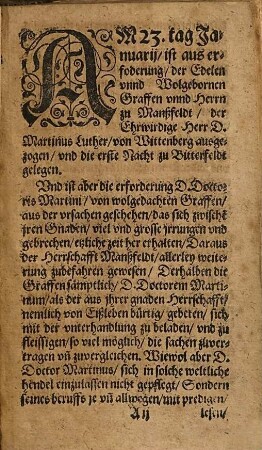 AM 23. tag Ja-
nuarij/ ist aus er-
foderung/ der Edelen
vnnd Wolgebornen
Graffen vnnd Herrn
zu Manßfeldt/ der
Ehrwirdige Herr D.
Martinus Luther/ von Wittenberg ausge-
zogen/ vnd die erste Nacht zu Bitterfeldt
gelegen.
Vnd ist aber die erforderung D. Docto-
ris Martini/ von wolgedachten Graffen/
aus der vrsachen geschehen/ das sich zwischē
jren Gnaden/ viel vnd grosse jrrungen vnd
gebrechen/ etzlicht zeit her erhalten/ Daraus
der Herrschafft Manßfeldt/ allerley weite-
rung zubefahren gewesen/ Derhalben die
Graffen sämptlich/ D. Doctorem Marti-
num/ als der aus jhrer gnaden Herrschafft/
nemlich von Eißleben bürtig/ gebeten/ sich
mit der vnterhandlung zu beladen/ vnd zu
fleissigen/ so viel möglich/ die sachen zuver-
tragen vñ zuvergleichen. Wiewol aber D.
Doctor Martinus/ sich in solche weltliche
hendel einzulassen nicht gepflegt/ Sondern
seines beruffs je vñ allwogen/ mit predigen/
A ij lesen/